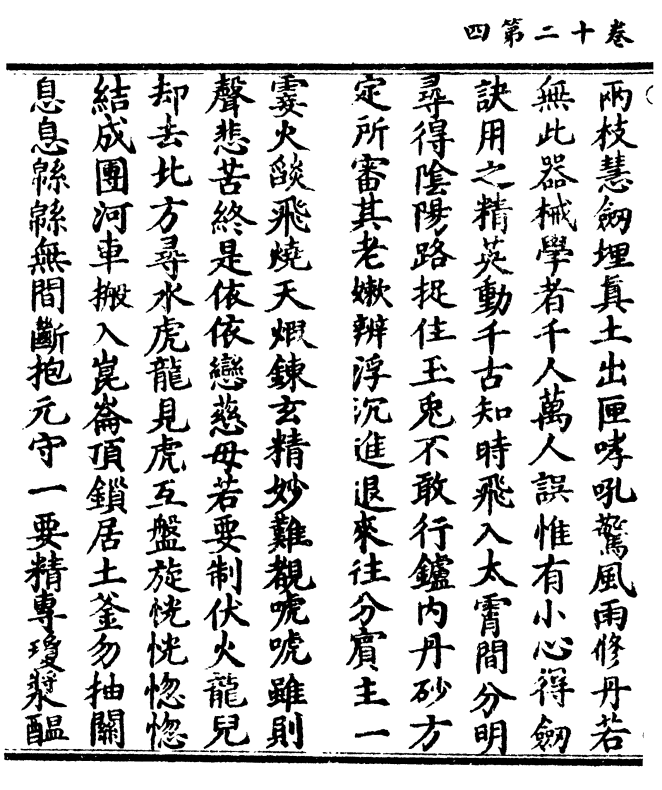 卷十二第四
兩枝慧劒埋真土出匣哮吼驚風雨修丹若
無此器械學者千人萬人誤惟有小心得劒
訣用之精英動千古知時飛入太霄間分明
尋得陰陽路捉住玉兎不敢行鑪內丹砂方
定所審其老嫰辨浮沉進退來往分賓主一
霎火燄飛燒天煆鍊玄精妙難覩唬唬雖則
聲悲苦終是依依戀慈母若要制伏火龍兒
却去北方尋水虎龍見虎互盤旋恍恍惚惚
結成團河車搬入崑崙頂鎖居土釜勿抽關
息息緜緜無間斷抱元守一要精專瓊漿醖